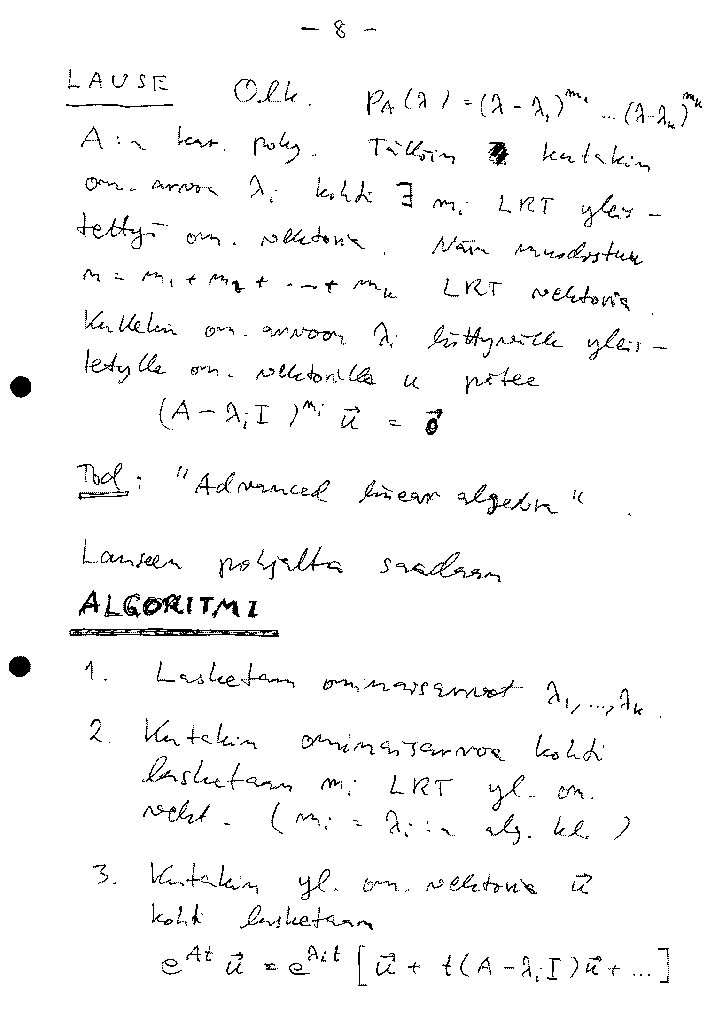 - 8 -
LAUSE Olk. p_A(λ) = (λ - λ₁)^{m₁} ... (λ-λ_k)^{m_k}
A:n kar. poly. Tällöin kutakin
om. arvoa λᵢ kohti ∃ mᵢ LRT yleis-
tettyä om. vektoria. Näin muodostuu
n = m₁ + m₂ + ... + m_k LRT vektoria.
Kuhkin om. arvoon λᵢ liittyvälle yleis-
tetylle om. vektorille u pätee
(A - λᵢI)^{mᵢ} u⃗ = 0⃗
Tod: "Advanced linear algebra".
Lauseen pohjalta saadaan
ALGORITMI
1. Lasketaan ominaisarvot λ₁,...,λ_k.
2. Kutakin ominaisarvoa kohti
lasketaan mᵢ LRT yl. om.
vekt. (mᵢ = λᵢ:n alg. kl.)
3. Kutakin yl. om. vektoria u⃗
kohti lasketaan
e^{At} u⃗ = e^{λᵢt} [u⃗ + t(A - λᵢI)u⃗ + ...]